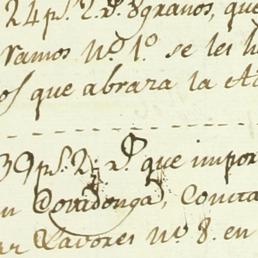 24 p.s 2 r.s 8 granos, que
ramos N.o 1.o se les h
os que abraza la
39 p.s 2 r.s que impor
en Covadonga, Consta
Lavores N.o 8. en